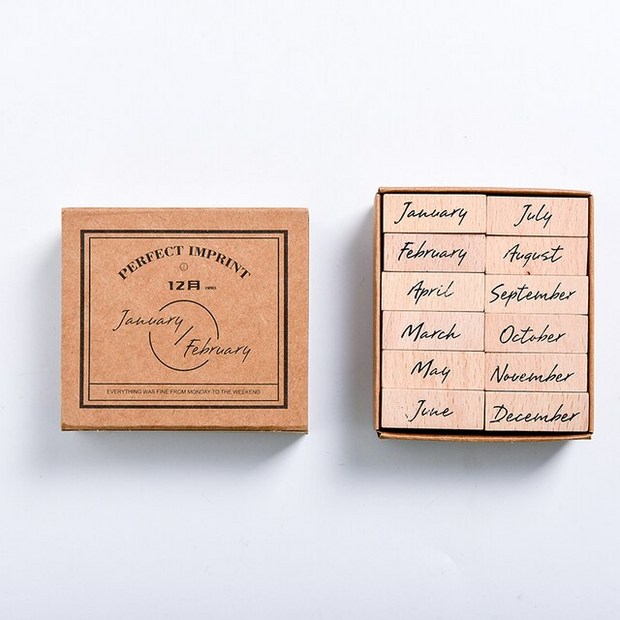 PERFECT IMPRINT
12月
January
/
February
EVERYTHING WAS FINE FROM MONDAY TO THE WEEKEND
January
February
April
March
May
June
July
August
September
October
November
December